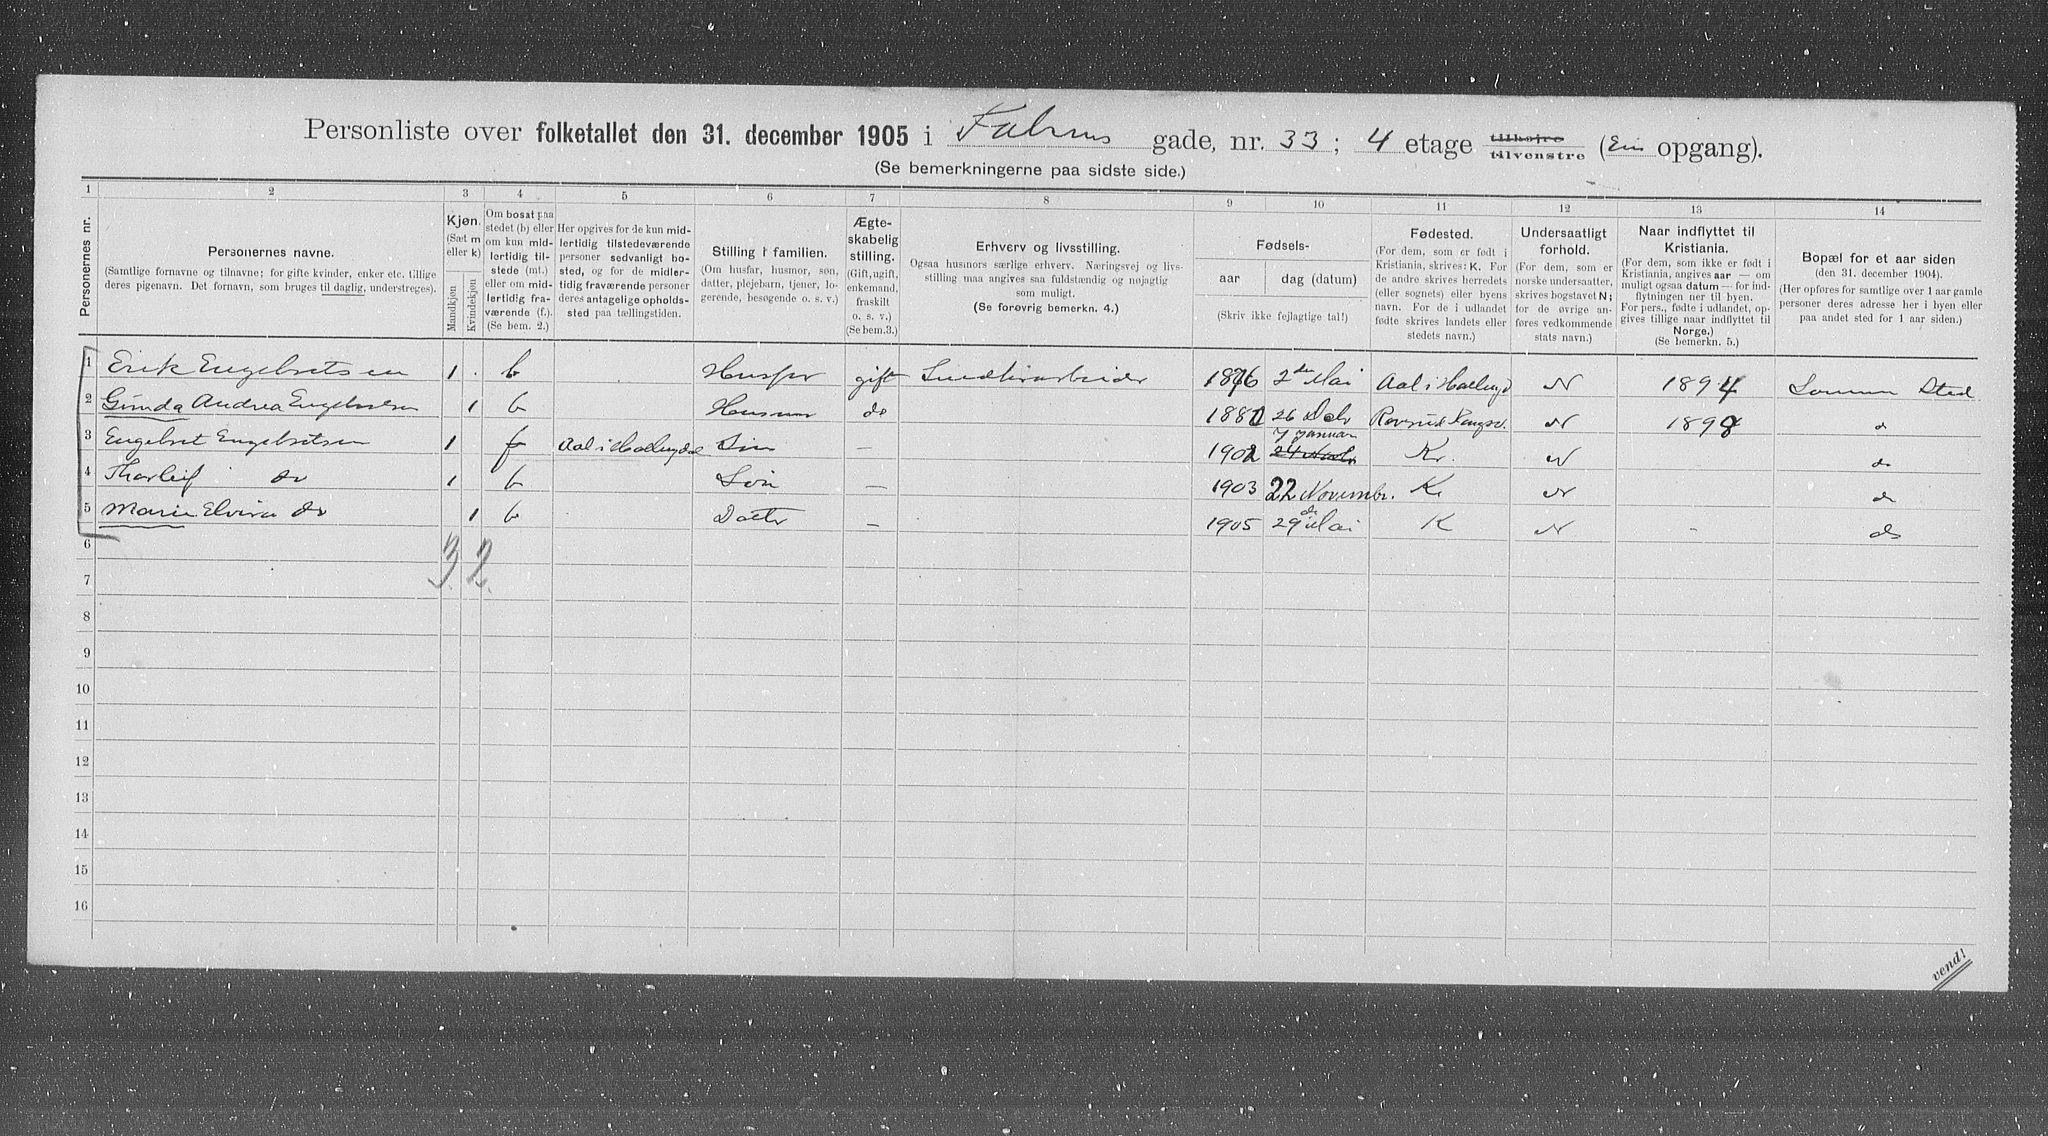 Personliste over folketallet den 31. december 1905 i Falsens gade, nr. 33; 4 etage tilhøjre tilvenstre (Ein opgang).
(Se bemerkningerne paa sidste side.)
1 2 3 4 5 6 7 8 9 10 11 12 13 14
Personernes nr.
Personernes navne.
(Samtlige fornavne og tilnavne; for gifte kvinder, enker etc. tillige
deres pigenavn. Det fornavn, som bruges til daglig, understreges).
Kjøn.
(Sæt m
eller k)
Mandkjøn
Kvindekjøn
Om bosat paa
stedet (b) eller
om kun mid-
lertidig til-
stede (mt.)
eller om mid-
lertidig fra-
værende (f.).
(Se bem. 2.)
Her opgives for de kun mid-
lertidig tilstedeværende
personer sedvanligt bo-
sted, og for de midler-
tidig fraværende personer
deres antagelige opholds-
sted paa tællingstiden.
Stilling i familien.
(Om husfar, husmor, søn,
datter, plejebarn, tjener, lo-
gerende, besøgende o. s. v.)
Ægte-
skabelig
stilling.
(Gift, ugift,
enkemand,
fraskilt
o. s. v.)
(Se bem. 3.)
Erhverv og livsstilling.
Ogsaa husmors særlige erhverv. Næringsvej og livs-
stilling maa angives saa fuldstændig og nøjagtig
som muligt.
(Se forøvrig bemerkn. 4.)
Fødsels-
aar dag (datum)
(Skriv ikke fejlagtige tal!)
Fødested.
(For dem, som er født i
Kristiania, skrives: K. For
de andre skrives herredets
(eller sognets) eller byens
navn. For de i udlandet
fødte skrives landets eller
stedets navn.)
Undersaatligt
forhold.
(For dem, som er
norske undersaatter,
skrives bogstavet N;
for de øvrige an-
føres vedkommende
stats navn.)
Naar indflyttet til
Kristiania.
(For dem, som ikke er født i
Kristiania, angives aar — om
muligt ogsaa datum — for ind-
flytningen her til byen.
For pers., fødte i udlandet, op-
gives tillige naar indflyttet til
Norge.)
(Se bemerkn. 5.)
Bopæl for et aar siden
(den 31. december 1904).
(Her opføres for samtlige over 1 aar gamle
personer deres adresse her i byen eller
paa andet sted for 1 aar siden.)
1 Erik Engebretsen 1 b Husfar gift 1876 2den Mai Aal i Hallingd N 1894 Samme Sted
2 Gunda Andrea Engebretsen 1 b Husmor do 26 Debr N 1898 do
3 Engebret Engebretsen 1 f Aal i Hallingdal Søn — 1902 7 Januar Kr. N do
4 Thorleif do 1 b Søn — 1903 22 Novembr. Kr N do
5 Marie Elvira do 1 b Datter — 1905 29de Mai K N - do
3 2
6
7
8
9
10
11
12
13
14
15
16
vend!